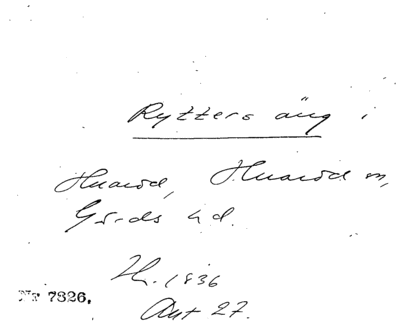 Rytters äng i
Huaröd, Huaröd sn,
Gärds hd.
Th. 1836
Akt 27.
Nr 7826.